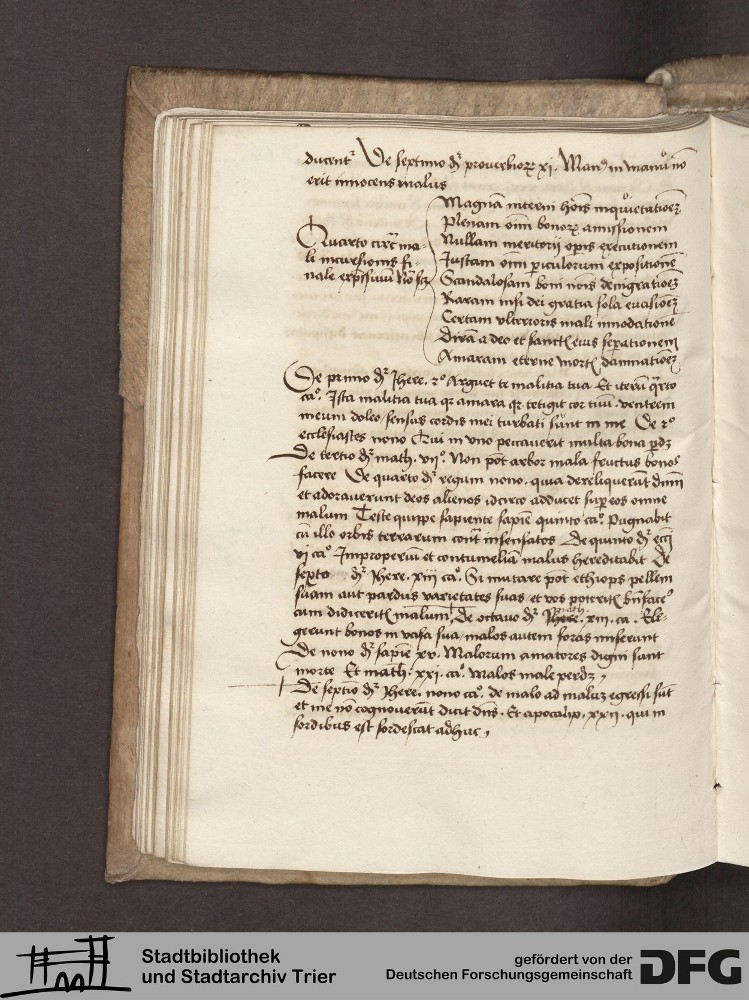 ducent᷑ De septimo dr̄ proverbioꝝ xi. Man⁹ in manū nō
erit innocens malus
Quarto circa ma-
li incursionis fi-
nale expressivum
Magnā interni hoīs inquietatioēꝫ
Plenam oīm bonoꝝ amissionem
Nullam meritorii opis executionem
Justam oīm periculorum expositionē
Scandalosam boni nois denigratioēꝫ
Raram nisi dei gratia sola evasionēꝫ
Certam ulterioris mali innodationē
Dirā a deo et sanctis eius separationem
Amaram eterne mortis damnatioēꝫ
De primo dr̄ Jhere. 2º Arguet te malitia tua Et iterū qrto
caº. Ista malitia tua qr amara qr tetigit cor tuū. ventrem
meum doleo / sensus cordis mei turbati sunt in me De 2º
ecclesiastes nono Qui in uno peccaverit multa bona pdꝫ
De tertio dr̄ math. viiº. Non pōt arbor mala fructus bonos
facere De quarto dr̄ regum nono. quia dereliquerūt dnm
et adoraverunt deos alienos idcirco adducet super eos omne
malum Teste quippe sapiente sapīe quinto caº. Pugnabit
cū illo orbis terrarum contra insensatos De quinto dr̄ ecci
vi caº Improperiū et contumeliā malus hereditabit De
sexto dr̄ Jhere. xiii caº. Si mutare pōt ethiops pellem
suam aut pardus varietates suas et vos poteritis bnfacere
cum didiceritis malum. De octavo dr̄ math. xiii. ca. Ele-
gerunt bonos in vasa sua / malos autem foras miserunt
De nono dr̄ sapīe xv. Malorum amatores digni sunt
morte Et math. xxi. caº Malos male perdꝫ,
De septīo dr̄ Jhere. nono caº. de malo ad maluꝫ egressi sūt
et me nō cognoverūt dicit dn̄s. Et apocalip. xxii. qui in
sordibus est sordescat adhuc,
Stadtbibliothek
und Stadtarchiv Trier
gefördert von der
Deutschen Forschungsgemeinschaft
DFG